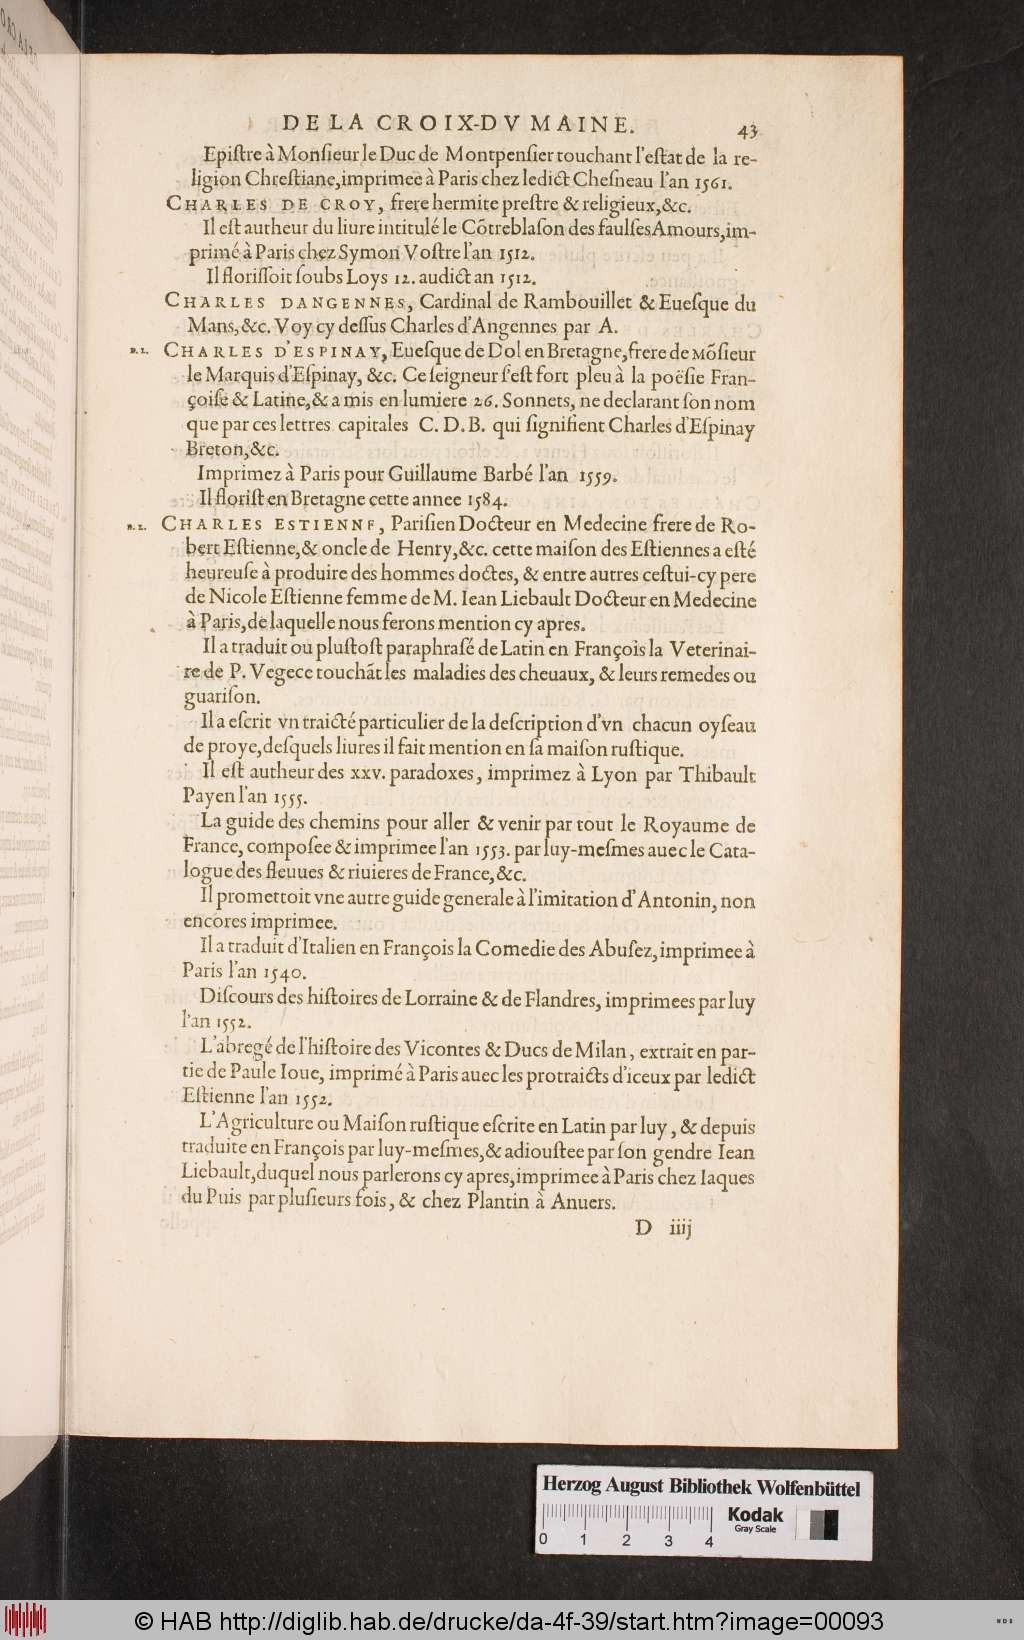 DE LA CROIX-DV MAINE. 43
Epiſtre à Monſieur le Duc de Montpenſier touchant l'eſtat de la re-
ligion Chreſtiane, imprimee à Paris chez ledict Cheſneau l'an 1561.
CHARLES DE CROY, frere hermite preſtre & religieux, &c.
Il eſt autheur du liure intitulé le Cõtreblaſon des faulſes Amours, im-
primé à Paris chez Symon Voſtre l'an 1512.
Il floriſſoit ſoubs Loys 12. audict an 1512.
CHARLES DANGENNES, Cardinal de Rambouillet & Eueſque du
Mans, &c. Voy cy deſſus Charles d'Angennes par A.
CHARLES D'ESPINAY, Eueſque de Dol en Bretagne, frere de Mõſieur
le Marquis d'Eſpinay, &c. Ce ſeigneur s'eſt fort pleu à la poëſie Fran-
çoiſe & Latine, & a mis en lumiere 26. Sonnets, ne declarant ſon nom
que par ces lettres capitales C. D. B. qui ſignifient Charles d'Eſpinay
Breton, &c.
Imprimez à Paris pour Guillaume Barbé l'an 1559.
Il floriſt en Bretagne cette annee 1584.
CHARLES ESTIENNE, Pariſien Docteur en Medecine frere de Ro-
bert Eſtienne, & oncle de Henry, &c. cette maiſon des Eſtiennes a eſté
heureuſe à produire des hommes doctes, & entre autres ceſtui-cy pere
de Nicole Eſtienne femme de M. Iean Liebault Docteur en Medecine
à Paris, de laquelle nous ferons mention cy apres.
Il a traduit ou pluſtoſt paraphraſé de Latin en François la Veterinai-
re de P. Vegece touchãt les maladies des cheuaux, & leurs remedes ou
guariſon.
Il a eſcrit vn traicté particulier de la deſcription d'vn chacun oyſeau
de proye, deſquels liures il fait mention en ſa maiſon ruſtique.
Il eſt autheur des xxv. paradoxes, imprimez à Lyon par Thibault
Payen l'an 1555.
La guide des chemins pour aller & venir par tout le Royaume de
France, compoſee & imprimee l'an 1553. par luy-meſmes auec le Cata-
logue des fleuues & riuieres de France, &c.
Il promettoit vne autre guide generale à l'imitation d'Antonin, non
encores imprimee.
Il a traduit d'Italien en François la Comedie des Abuſez, imprimee à
Paris l'an 1540.
Diſcours des hiſtoires de Lorraine & de Flandres, imprimees par luy
l'an 1552.
L'abregé de l'hiſtoire des Vicontes & Ducs de Milan, extrait en par-
tie de Paule Ioue, imprimé à Paris auec les protraicts d'iceux par ledict
Eſtienne l'an 1552.
L'Agriculture ou Maiſon ruſtique eſcrite en Latin par luy, & depuis
traduite en François par luy-meſmes, & adiouſtee par ſon gendre Iean
Liebault, duquel nous parlerons cy apres, imprimee à Paris chez Iaques
du Puis par pluſieurs fois, & chez Plantin à Anuers.
D iiij
Herzog August Bibliothek Wolfenbüttel
Kodak
Gray Scale
0 1 2 3 4
© HAB http://diglib.hab.de/drucke/da-4f-39/start.htm?image=00093